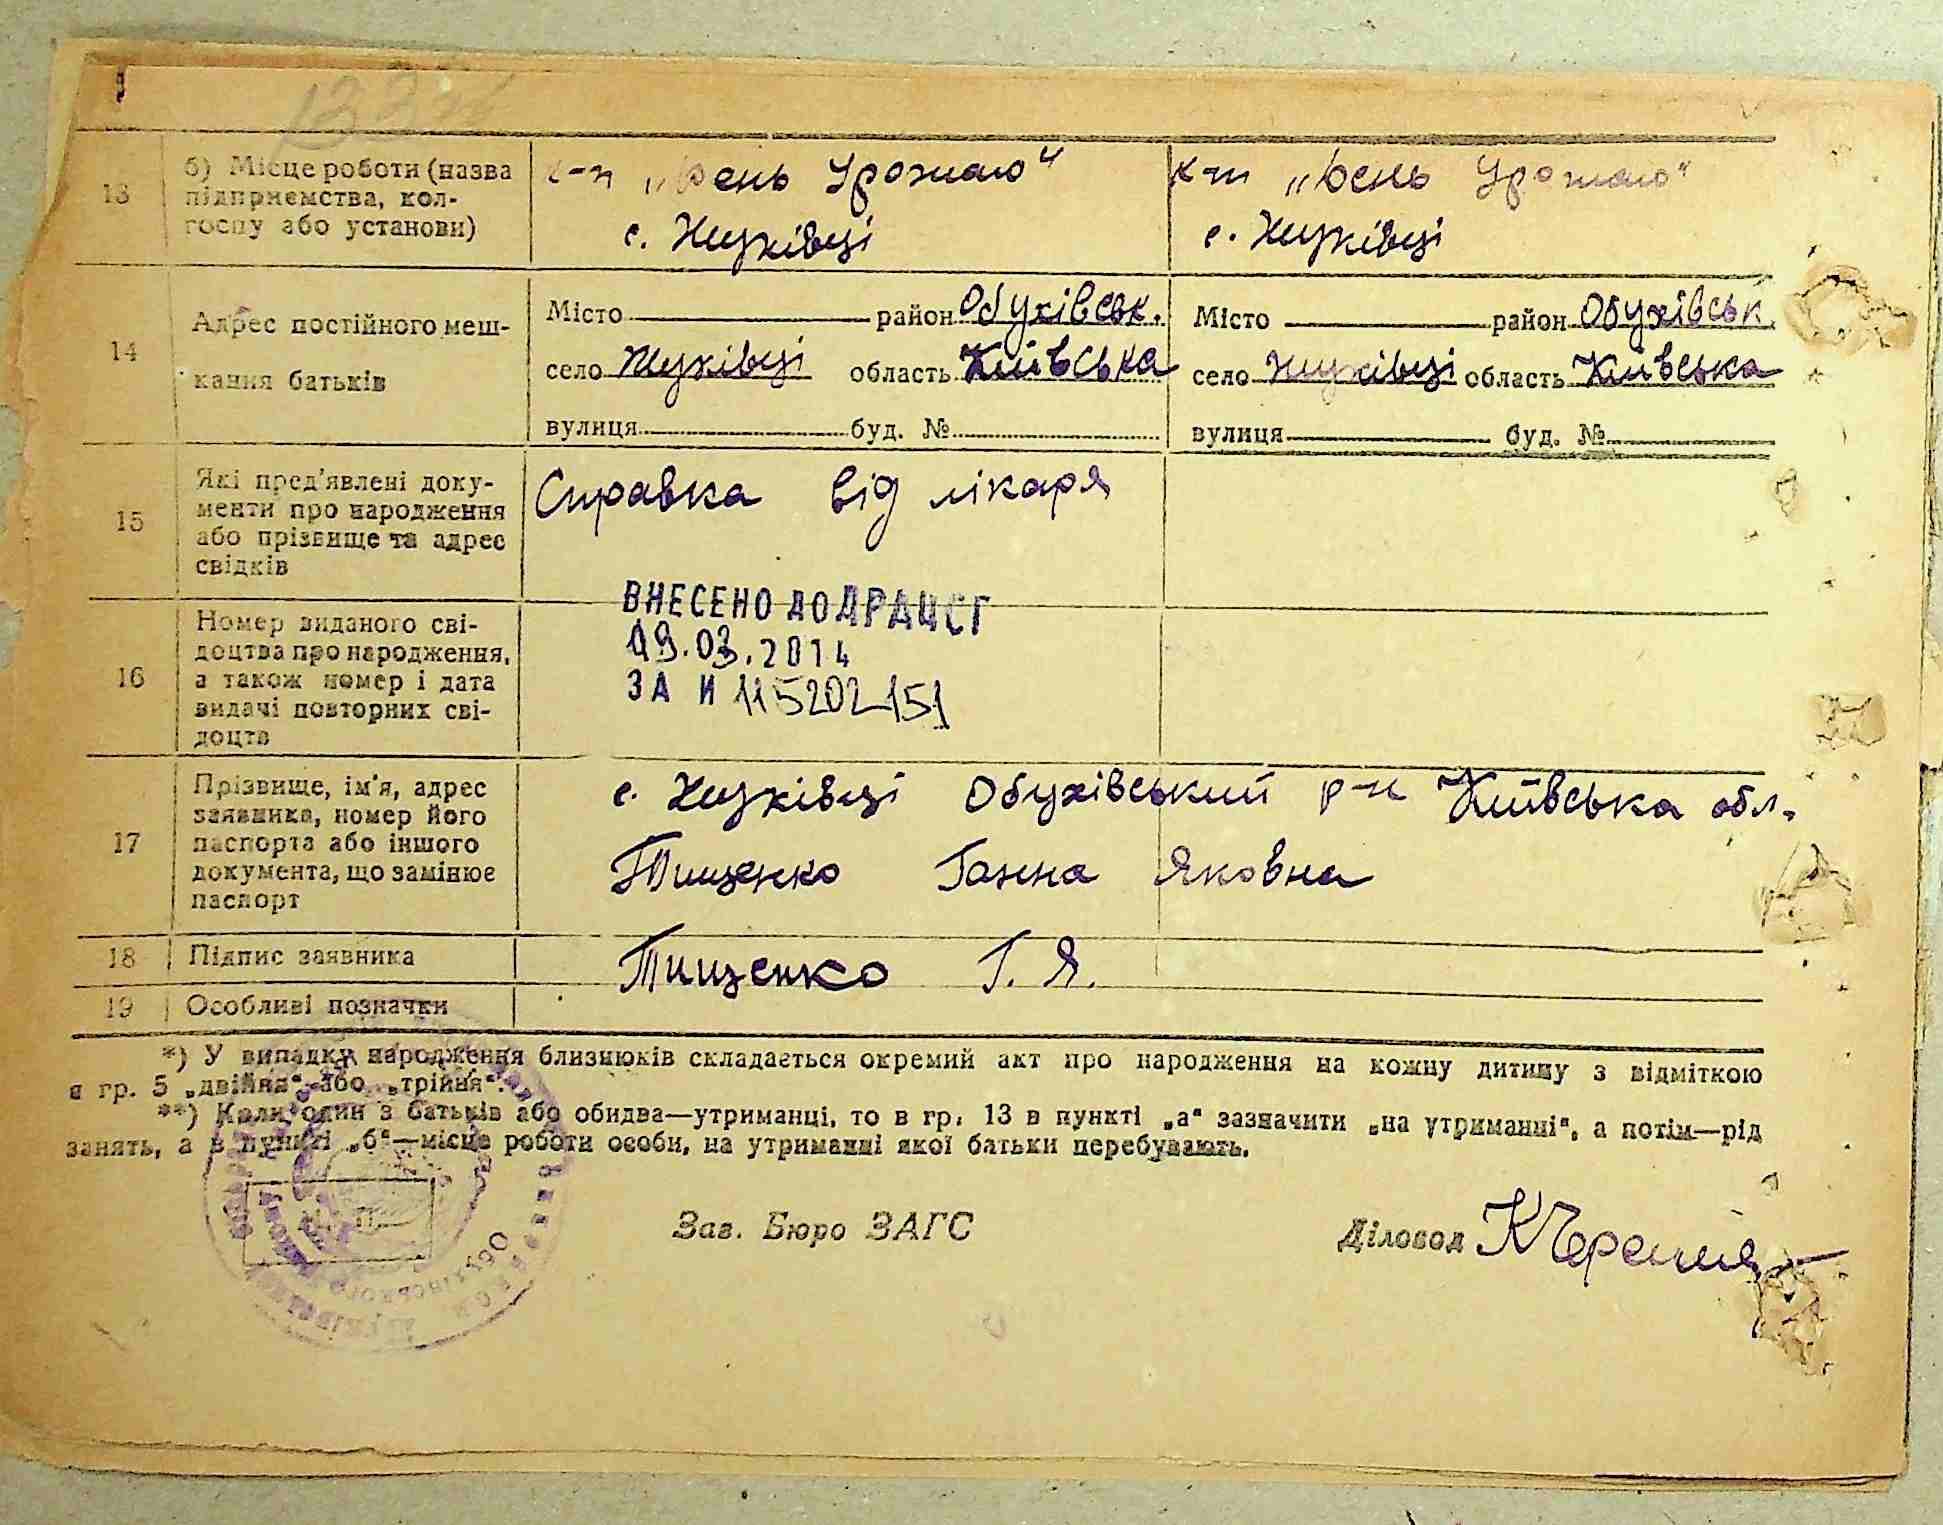 13
б) Місце роботи (назва
підприємства, кол-
госпу або установи)
к-п „День Урожаю“
с. Жуківці
к-п „День Урожаю“
с. Жуківці
14
Адрес постійного меш-
кання батьків
Місто район Обухівськ.
село Жуківці область Київська
вулиця буд. №
Місто район Обухівськ.
село Жуківці область Київська
вулиця буд. №
15
Які пред'явлені доку-
менти про народження
або прізвище та адрес
свідків
Справка від лікаря
16
Номер виданого сві-
доцтва про народження,
а також номер і дата
видачі повторних сві-
доцтв
ВНЕСЕНО ДО ДРАЦСГ
19.03.2014
ЗА И 115202151
17
Прізвище, ім'я, адрес
заявника, номер його
паспорта або іншого
документа, що замінює
паспорт
с. Жуківці Обухівський р-н Київська обл.
Тищенко Ганна Яковна
18
Підпис заявника
Тищенко Г. Я.
19
Особливі позначки
*) У випадку народження близнюків складається окремий акт про народження на кожну дитину з відміткою
в гр. 5 „двійня“ або „трійня“.
**) Коли один з батьків або обидва—утриманці, то в гр. 13 в пункті „а“ зазначити „на утриманні“, а потім—рід
занять, а в пункті „б“—місце роботи особи, на утриманні якої батьки перебувають.
Зав. Бюро ЗАГС
Діловод